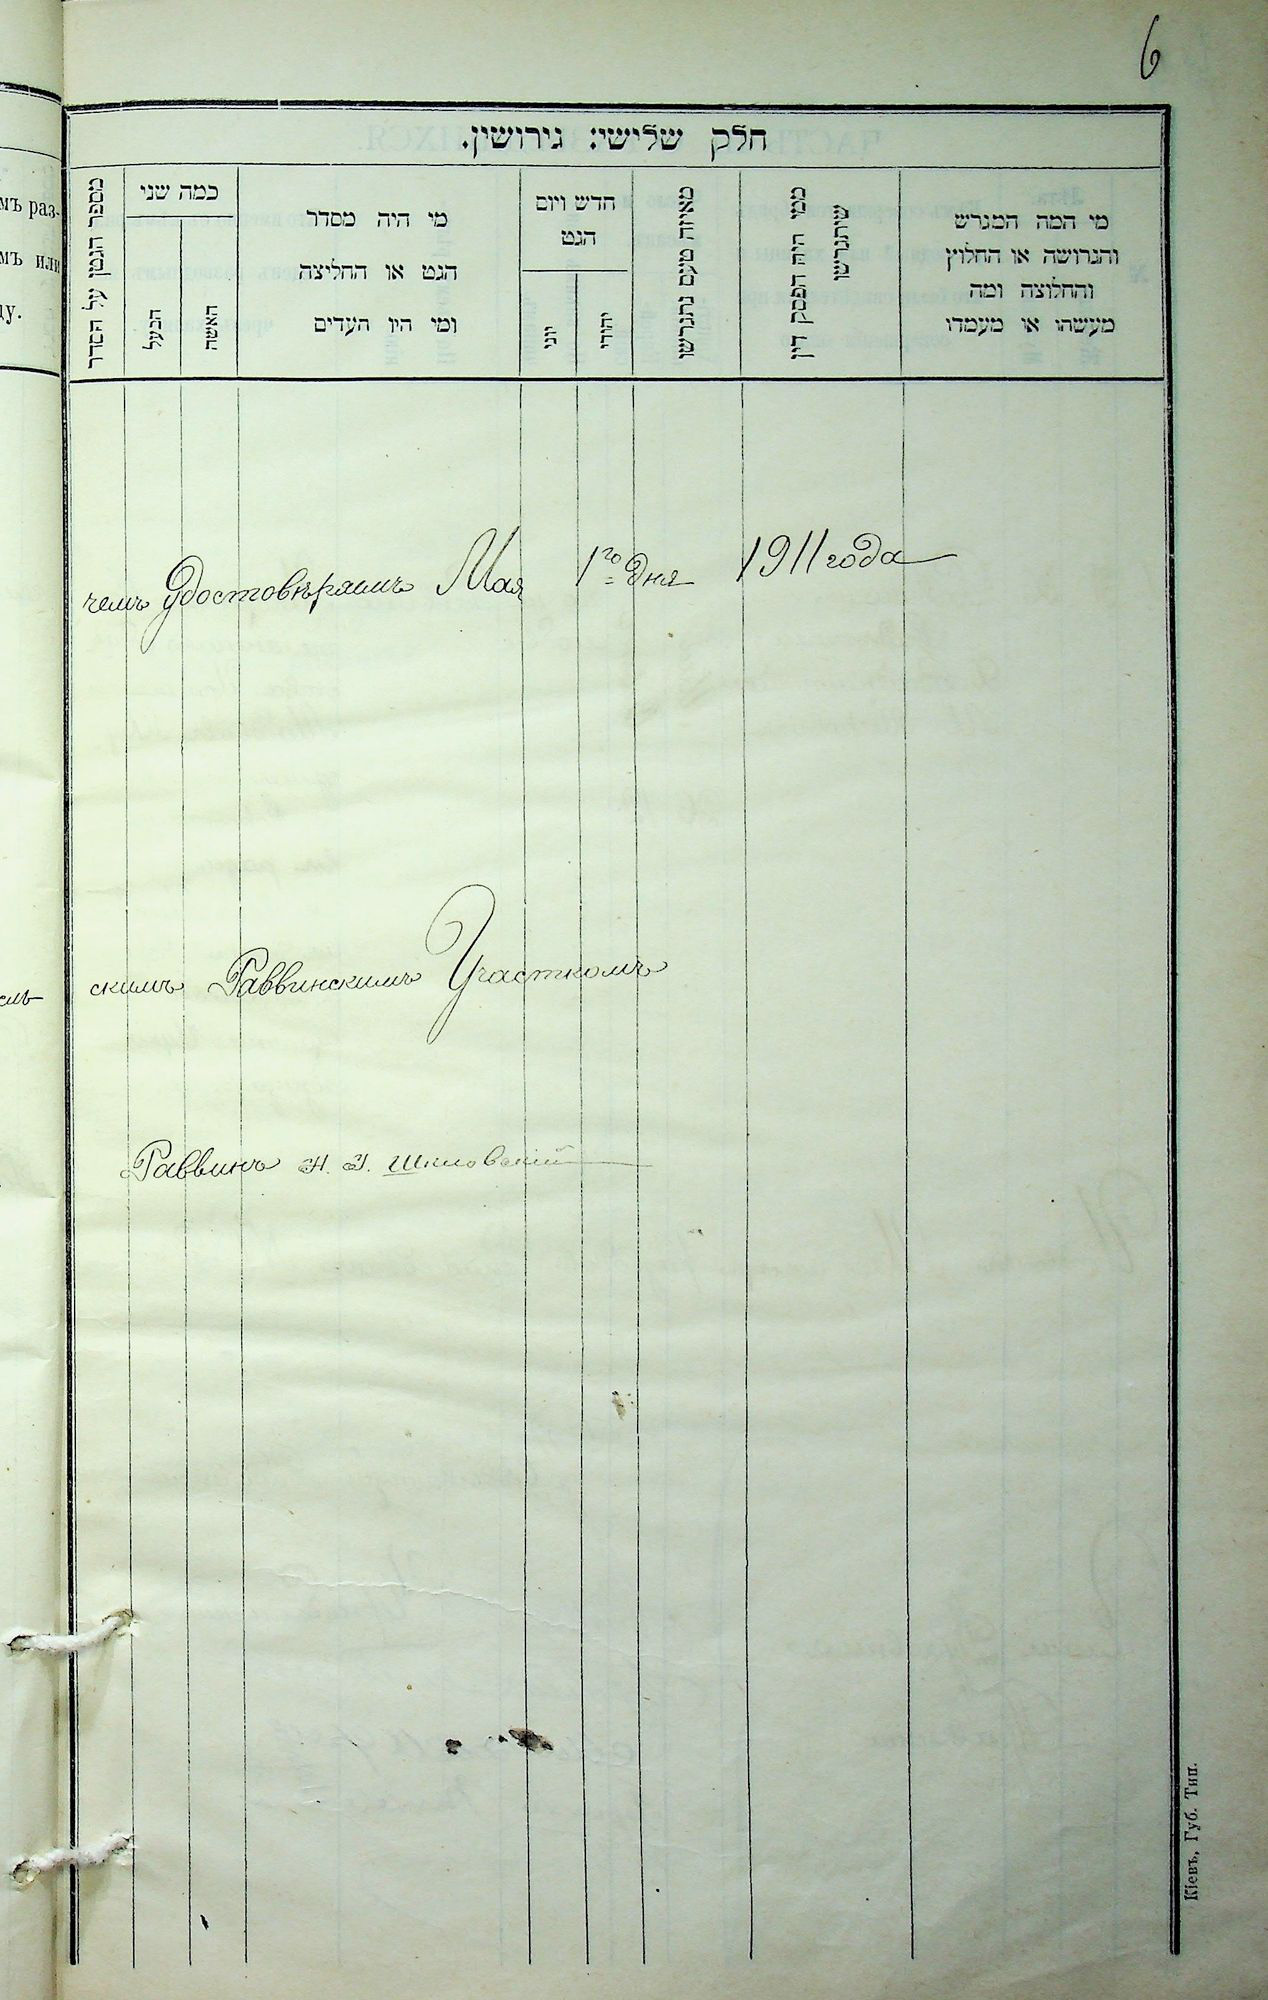 6
חלק שלישי: גירושין.
מספר הגטין על הסדר
כמה שני
הבעל
האשה
מי היה מסדר
הגט או החליצה
ומי היו העדים
חדש ויום
הגט
יוני
יהודי
מאיזה טעם נתגרשו
ממי היה הפסק דין
שיתגרשו
מי המה המגרש
והגרושה או החלוץ
והחלוצה ומה
מעשהו או מעמדו
мъ раз-
мъ или
ду.
чемъ удостовѣряемъ Мая 1го дня 1911 года
скимъ Раввинскимъ Участкомъ
Раввинъ Шкловскій
Кіевъ, Губ. Тип.